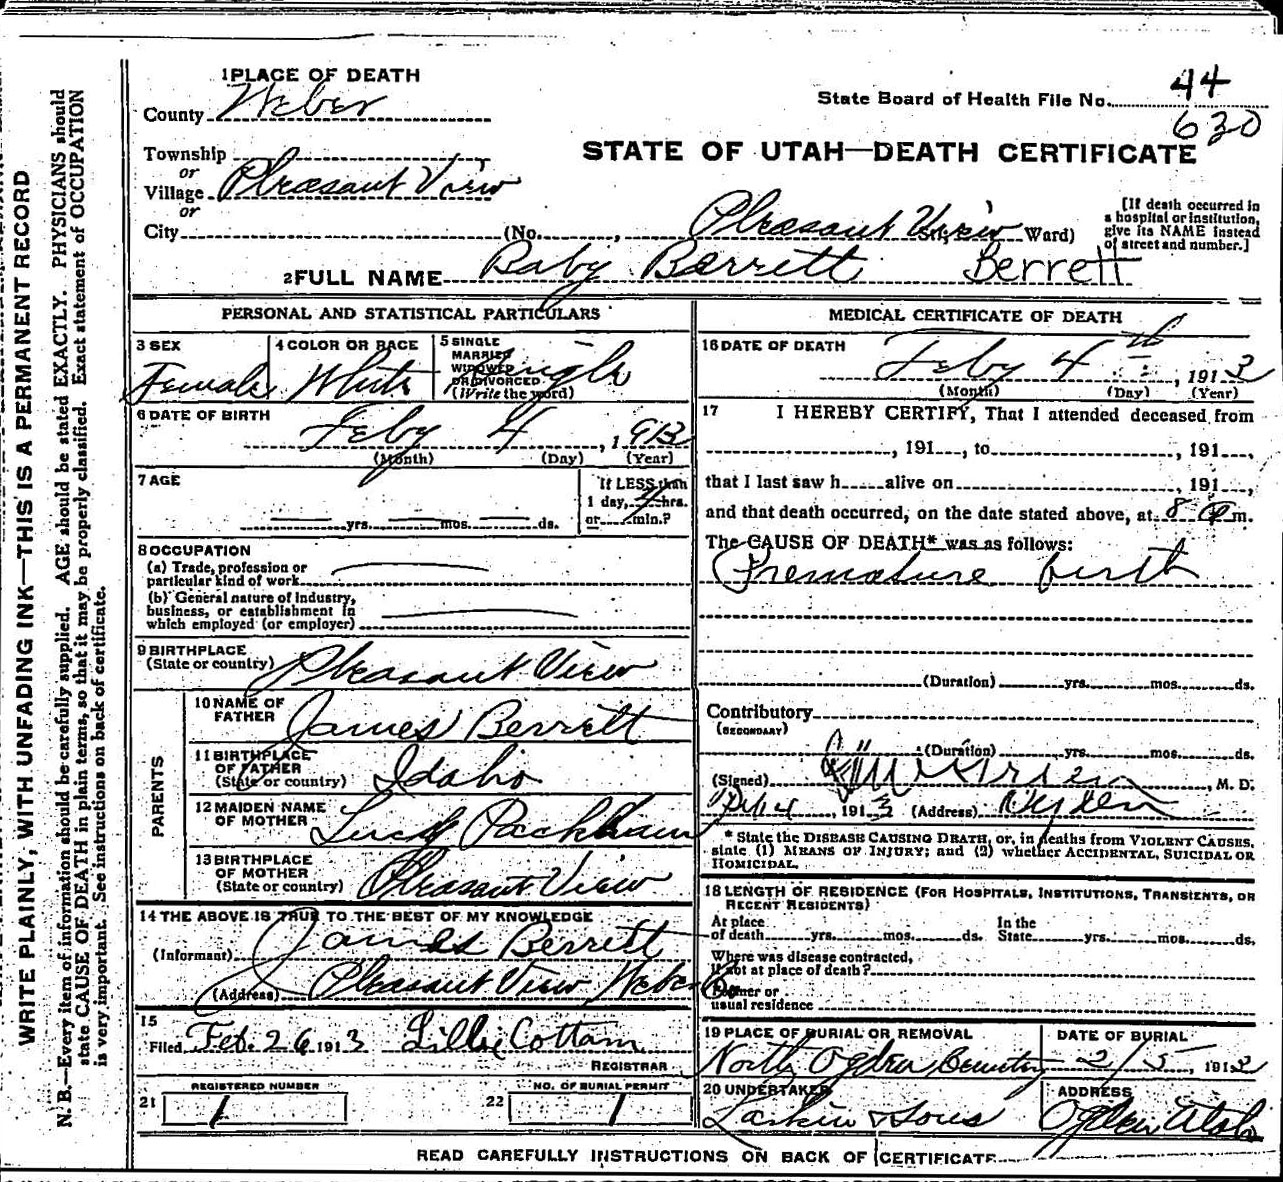 WRITE PLAINLY, WITH UNFADING INK—THIS IS A PERMANENT RECORD
N. B.—Every item of information should be carefully supplied. AGE should be stated EXACTLY. PHYSICIANS should
state CAUSE OF DEATH in plain terms, so that it may be properly classified. Exact statement of OCCUPATION
is very important. See instructions on back of certificate.
1 PLACE OF DEATH
County Weber
State Board of Health File No. 44
630
STATE OF UTAH—DEATH CERTIFICATE
Township
or
Village Pleasant View
or
City (No. , Pleasant View Ward)
[If death occurred in
a hospital or institution,
give its NAME instead
of street and number.]
2 FULL NAME Baby Berrett Berrett
PERSONAL AND STATISTICAL PARTICULARS
3 SEX
Female
4 COLOR OR RACE
White
5 SINGLE
MARRIED
WIDOWED
OR DIVORCED
(Write the word)
Single
6 DATE OF BIRTH
Feby 4, 1913
(Month) (Day) (Year)
7 AGE
yrs. mos. ds.
If LESS than
1 day, 4 hrs.
or min.?
8 OCCUPATION
(a) Trade, profession or
particular kind of work
(b) General nature of Industry,
business, or establishment in
which employed (or employer)
9 BIRTHPLACE
(State or country) Pleasant View
PARENTS
10 NAME OF
FATHER James Berrett
11 BIRTHPLACE
OF FATHER
(State or country) Idaho
12 MAIDEN NAME
OF MOTHER Lucy Packham
13 BIRTHPLACE
OF MOTHER
(State or country) Pleasant View
14 THE ABOVE IS TRUE TO THE BEST OF MY KNOWLEDGE
(Informant) James Berrett
(Address) Pleasant View Weber Co
15
Filed Feb. 26 1913 Lillie Cottam
REGISTRAR
REGISTERED NUMBER
21 1
NO. OF BURIAL PERMIT
22 1
MEDICAL CERTIFICATE OF DEATH
16 DATE OF DEATH
Feby 4th, 1913
(Month) (Day) (Year)
17 I HEREBY CERTIFY, That I attended deceased from
, 191 , to , 191 ,
that I last saw h alive on , 191 ,
and that death occurred, on the date stated above, at 8 P m.
The CAUSE OF DEATH* was as follows:
Premature birth
(Duration) yrs. mos. ds.
Contributory
(SECONDARY)
(Duration) yrs. mos. ds.
(Signed) , M. D.
, 1913 (Address) Ogden
* State the DISEASE CAUSING DEATH, or, in deaths from VIOLENT CAUSES,
state (1) MEANS OF INJURY; and (2) whether ACCIDENTAL, SUICIDAL OR
HOMICIDAL.
18 LENGTH OF RESIDENCE (FOR HOSPITALS, INSTITUTIONS, TRANSIENTS, OR
RECENT RESIDENTS)
At place
of death yrs. mos. ds.
In the
State yrs. mos. ds.
Where was disease contracted,
if not at place of death?
Former or
usual residence
19 PLACE OF BURIAL OR REMOVAL
North Ogden Cemetery
DATE OF BURIAL
2/5, 1913
20 UNDERTAKER
Larkin & Sons
ADDRESS
Ogden Utah
READ CAREFULLY INSTRUCTIONS ON BACK OF CERTIFICATE